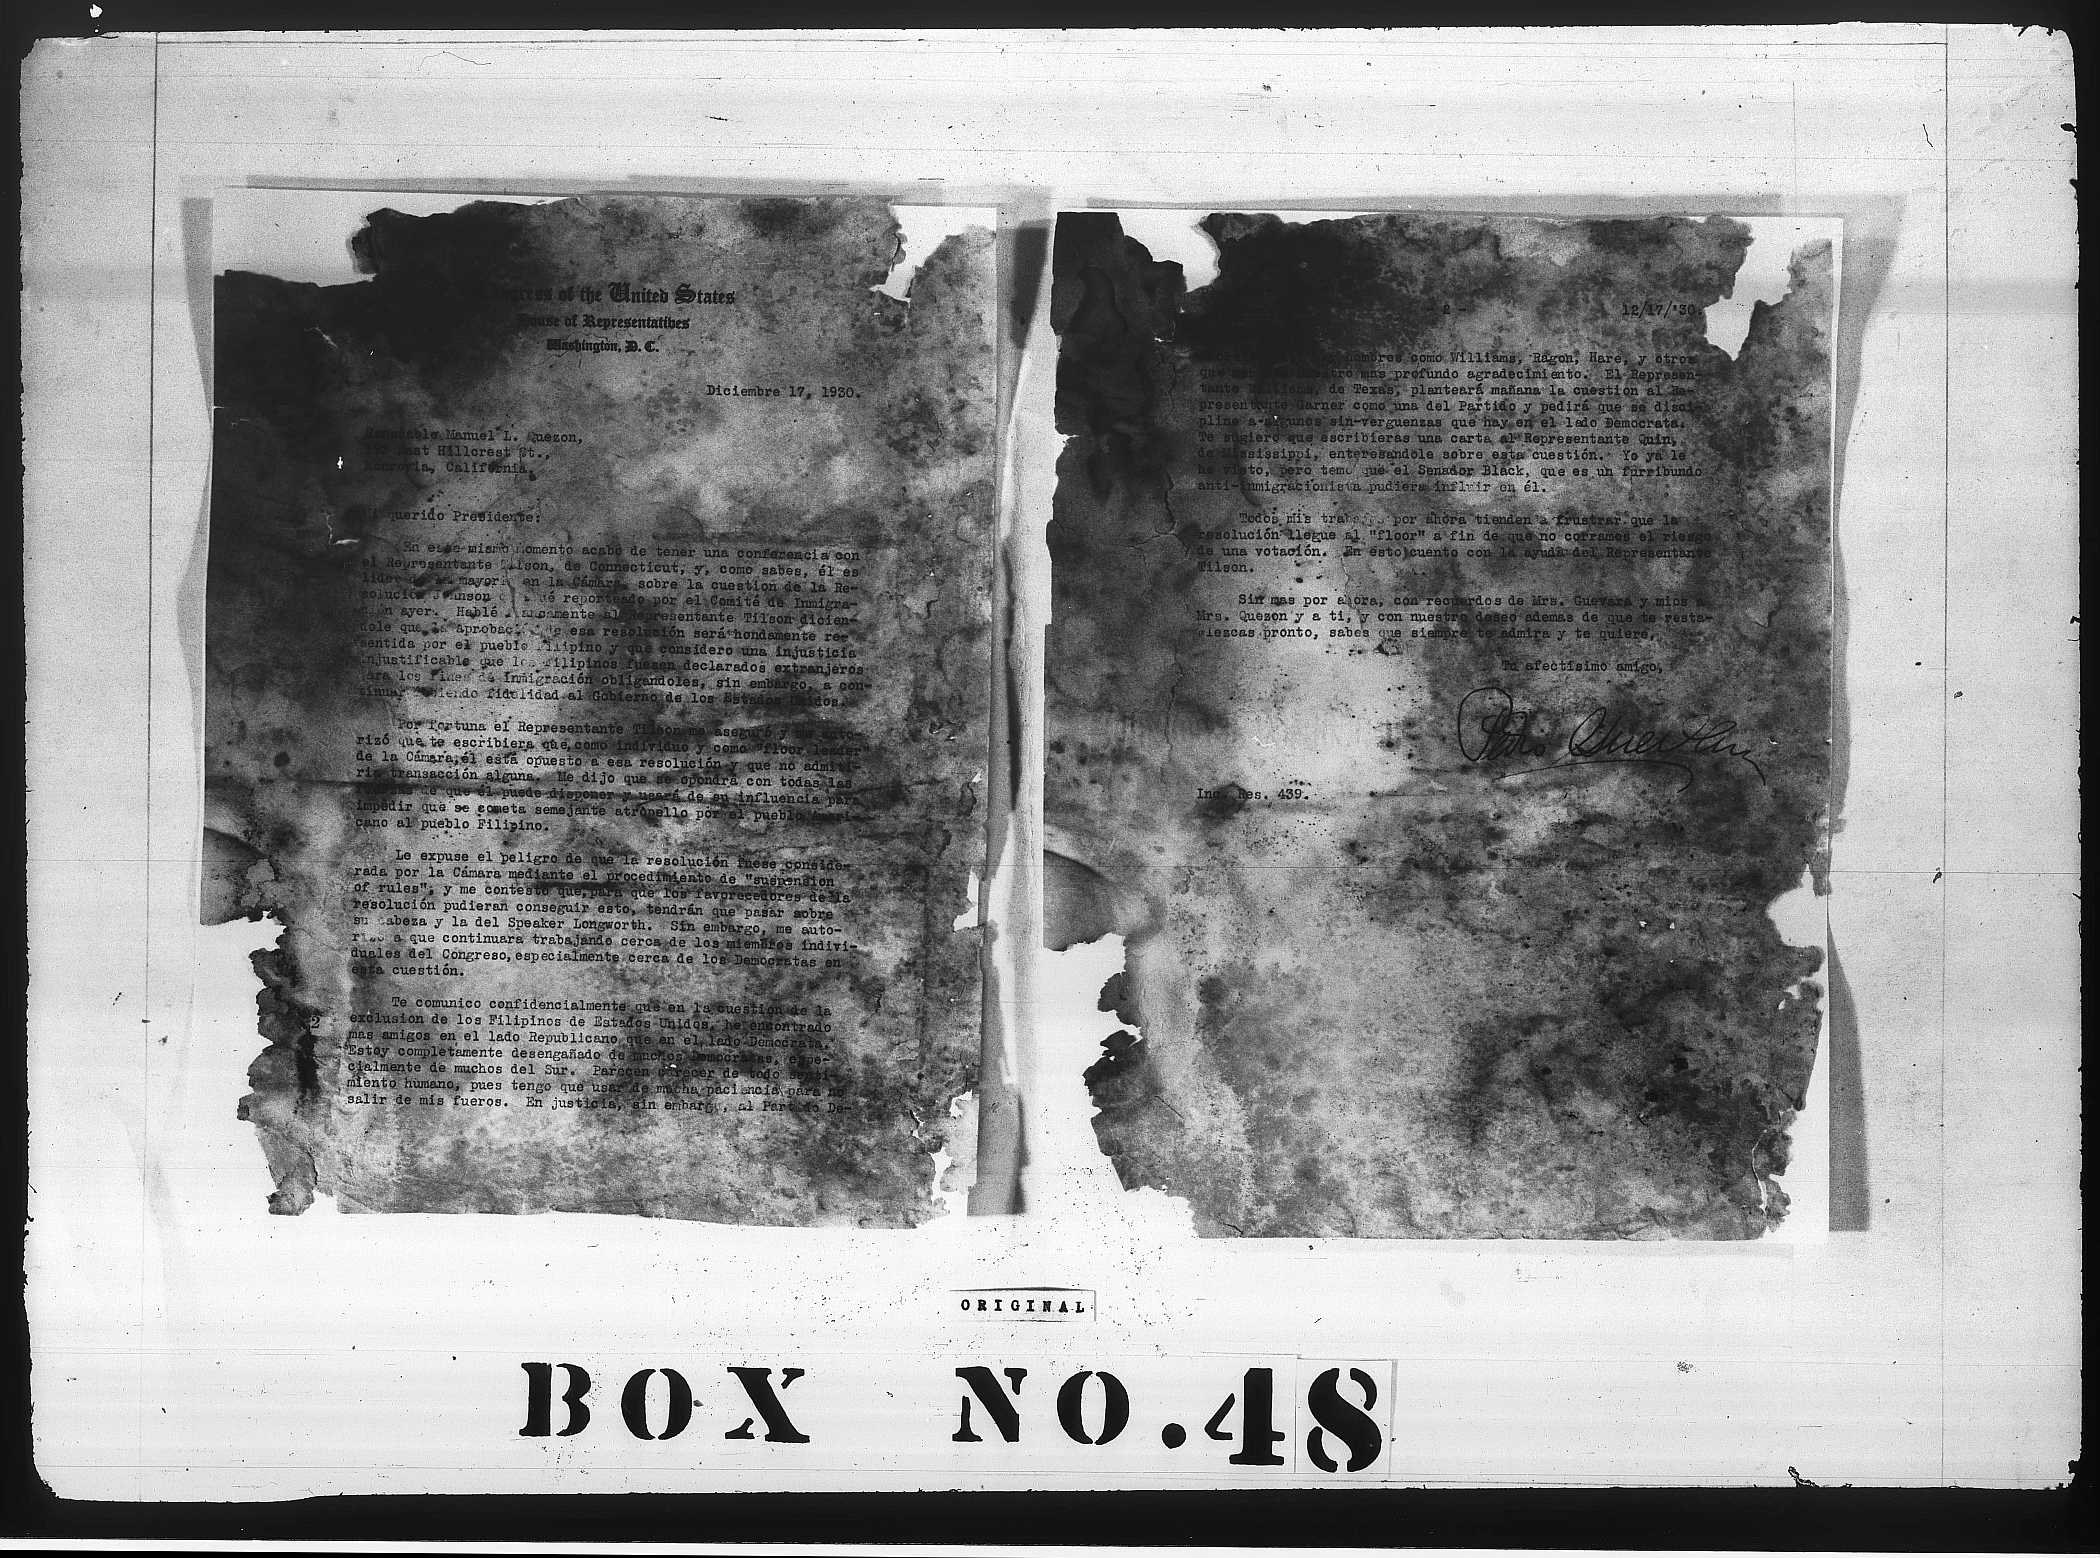 of the United States
House of Representatives
Washington, D. C.
Diciembre 17, 1930.
Honorable Manuel L. Quezon,
East Hillcrest St.,
Monrovia, California.
querido Presidente:
En este mismo momento acabo de tener una conferencia con
el Representante Tilson, de Connecticut, y, como sabes, él es
lider de la mayoria en la Cámara, sobre la cuestion de la Re-
solución Johnson que fué reporteado por el Comité de Inmigra-
ción ayer. Hablé francamente al Representante Tilson dicien-
dole que la aprobación de esa resolución será hondamente re-
sentida por el pueblo Filipino y que considero una injusticia
injustificable que los Filipinos fuesen declarados extranjeros
para los fines de Inmigración obligandoles, sin embargo, a con-
tinuar debiendo fidelidad al Gobierno de los Estados Unidos.
Por fortuna el Representante Tilson me aseguró y me auto-
rizó que te escribiera que, como individuo y como "floor leader"
de la Cámara, él está opuesto a esa resolución y que no admiti-
ria transacción alguna. Me dijo que se opondrá con todas las
fuerzas de que él puede disponer y usará de su influencia para
impedir que se cometa semejante atropello por el pueblo Ameri-
cano al pueblo Filipino.
Le expuse el peligro de que la resolución fuese conside-
rada por la Cámara mediante el procedimiento de "suspension
of rules", y me contestó que, para que los favorecedores de la
resolución pudieran conseguir esto, tendrán que pasar sobre
su cabeza y la del Speaker Longworth. Sin embargo, me auto-
rizó a que continuara trabajando cerca de los miembros indivi-
duales del Congreso, especialmente cerca de los Democratas en
esta cuestión.
Te comunico confidencialmente que en la cuestion de la
exclusion de los Filipinos de Estados Unidos, he encontrado
mas amigos en el lado Republicano que en el lado Democrata.
Estoy completamente desengañado de muchos Democratas, espe-
cialmente de muchos del Sur. Parecen carecer de todo senti-
miento humano, pues tengo que usar de mucha paciencia para no
salir de mis fueros. En justicia, sin embargo, al Partido De-
2
- 2 -
12/17/'30.
hombres como Williams, Ragon, Hare, y otros
que mas profundo agradecimiento. El Represen-
tante Williams, de Texas, planteará mañana la cuestion al Re-
presentante Garner como una del Partido y pedirá que se disci-
pline a algunos sin-verguenzas que hay en el lado Democrata.
Te sugiero que escribieras una carta al Representante Quin,
de Mississippi, enteresandole sobre esta cuestión. Yo ya le
he visto, pero temo que el Senador Black, que es un furribundo
anti-inmigracionista pudiera influir en él.
Todos mis trabajos por ahora tienden a frustrar que la
resolución llegue al "floor" a fin de que no corramos el riesgo
de una votación. En esto cuento con la ayuda del Representante
Tilson.
Sin mas por ahora, con recuerdos de Mrs. Guevara y mios a
Mrs. Quezon y a ti, y con nuestro deseo ademas de que te resta-
blezcas pronto, sabes que siempre te admira y te quiere,
Tu afectisimo amigo,
Pedro Guevara
Inc. Res. 439.
ORIGINAL
BOX NO. 48